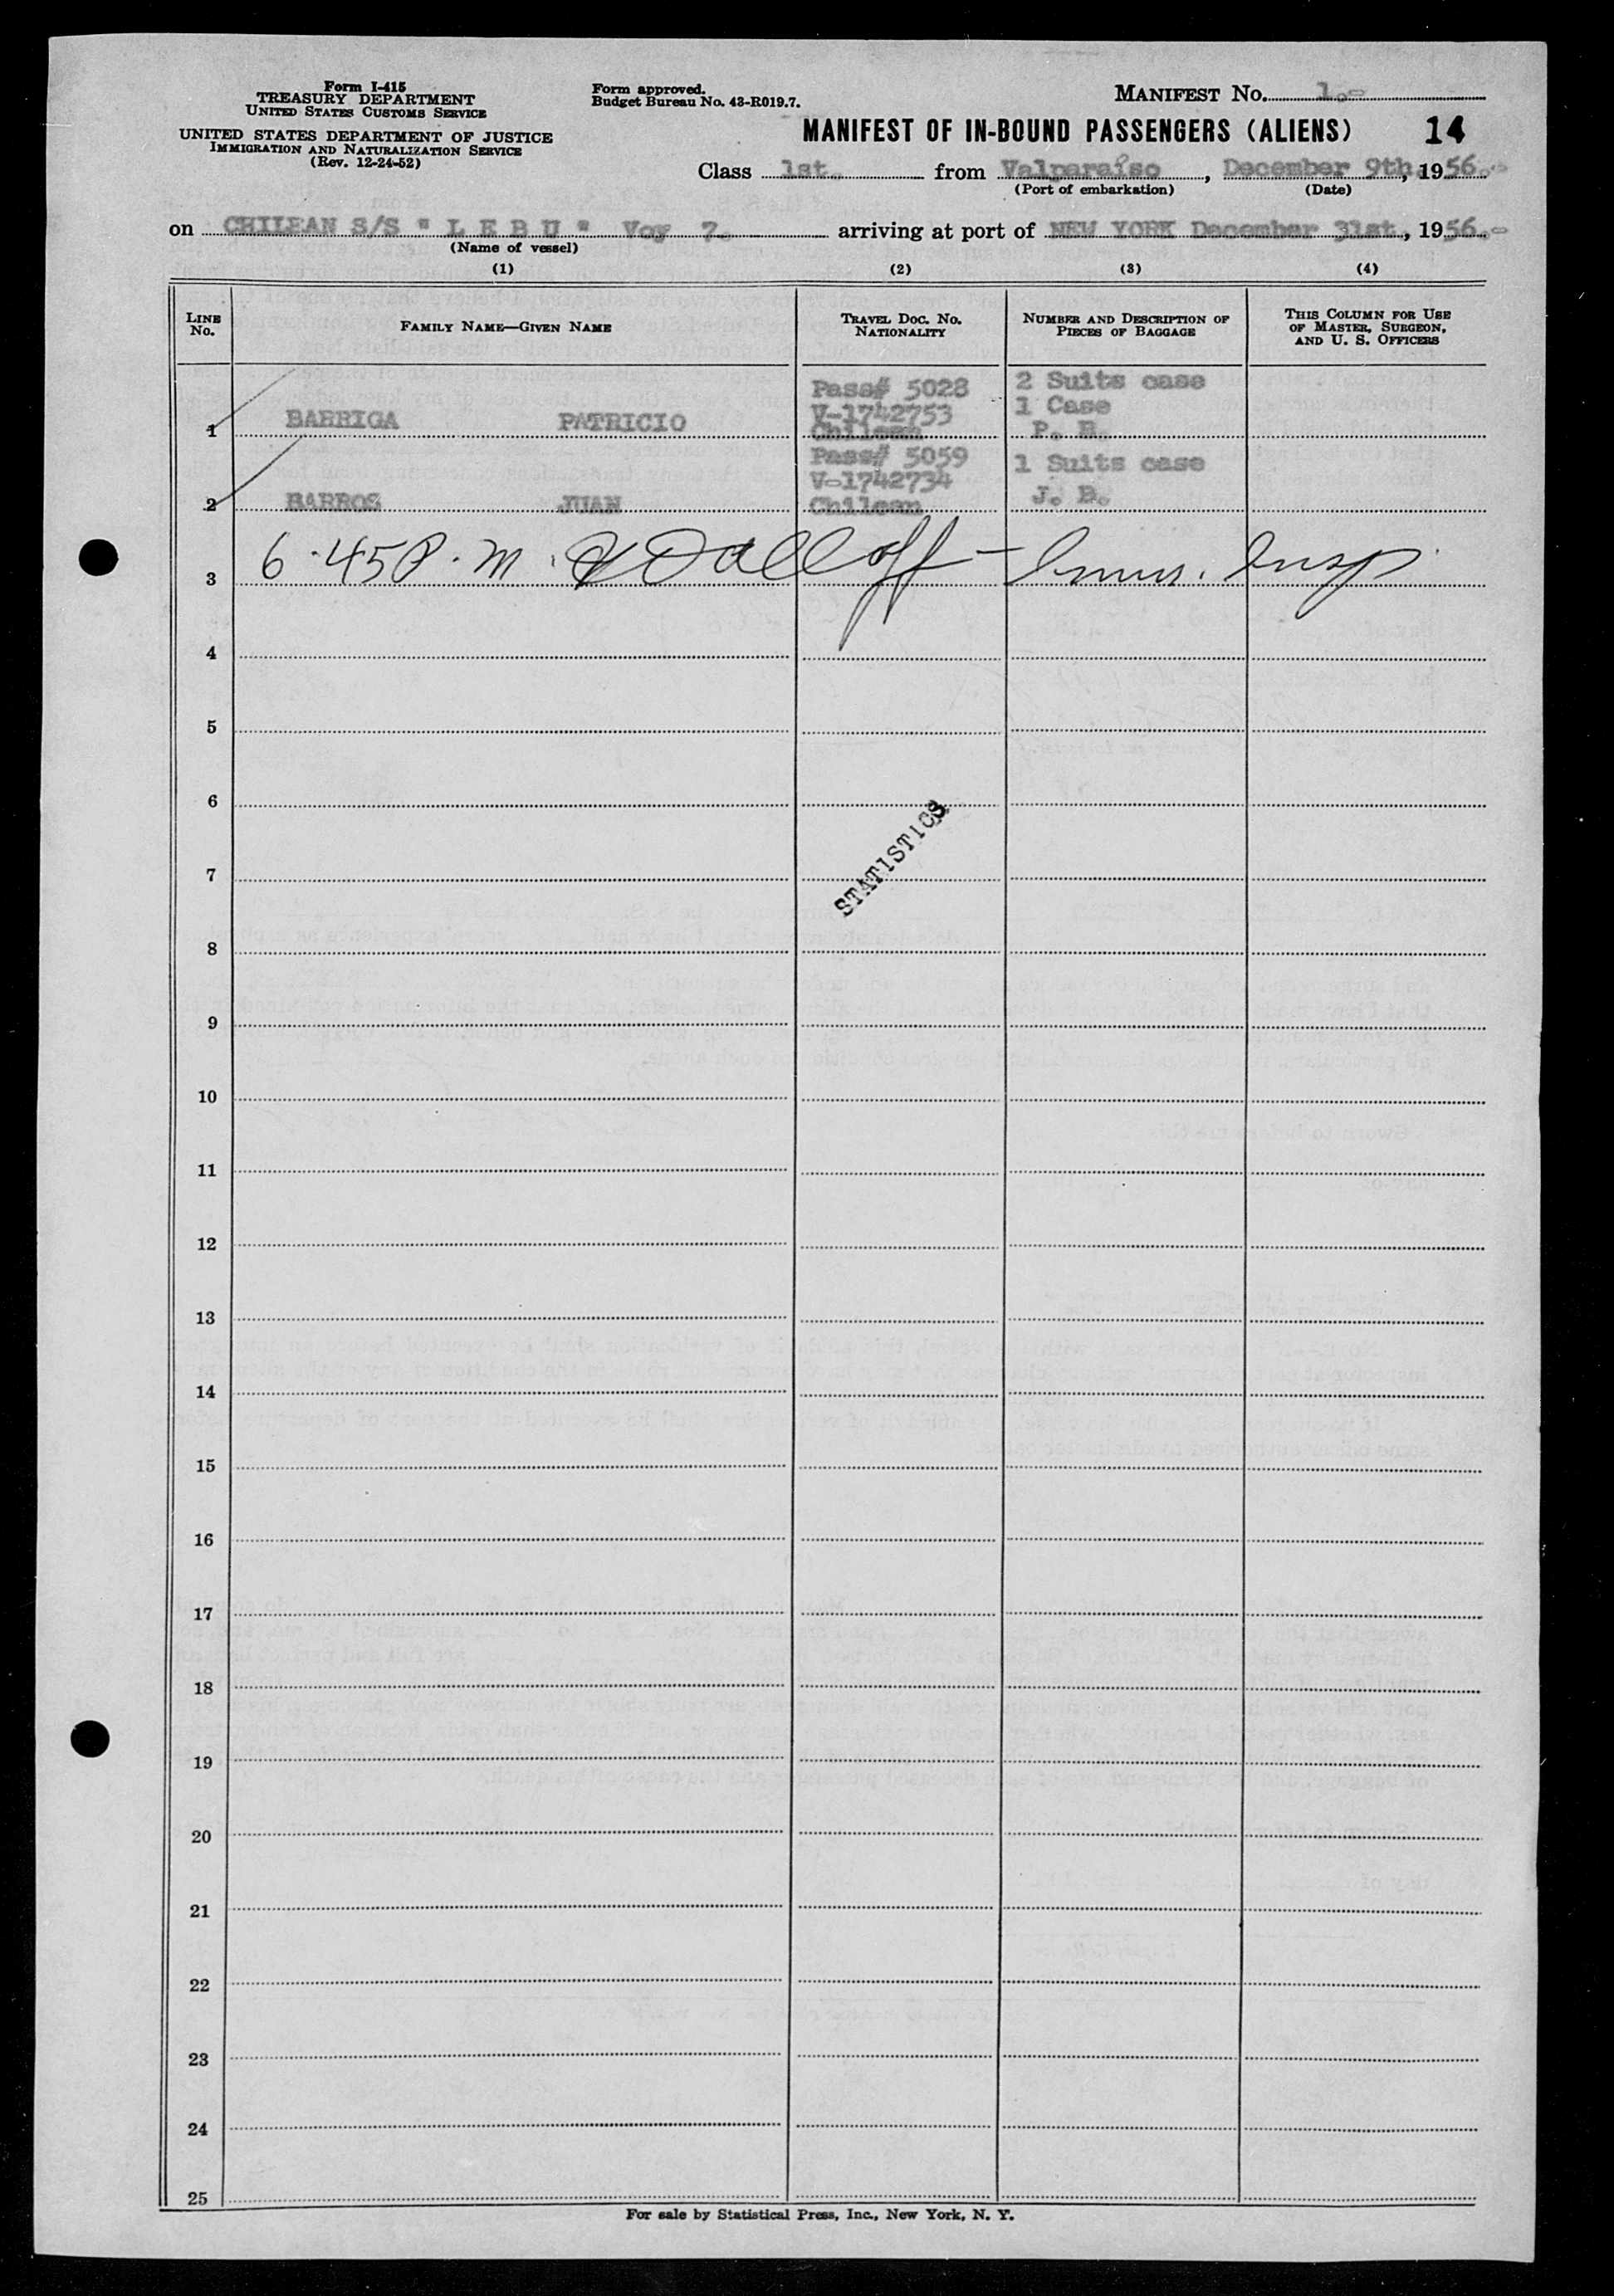 Form I-415
TREASURY DEPARTMENT
UNITED STATES CUSTOMS SERVICE
UNITED STATES DEPARTMENT OF JUSTICE
IMMIGRATION AND NATURALIZATION SERVICE
(Rev. 12-24-52)
Form approved.
Budget Bureau No. 43-R019.7.
MANIFEST No. 1.-
MANIFEST OF IN-BOUND PASSENGERS (ALIENS) 14
Class 1st. from Valparaíso, December 9th, 1956.-
(Port of embarkation) (Date)
on CHILEAN S/S " L E B U " Voy 7. arriving at port of NEW YORK December 31st, 1956.-
(Name of vessel)
(1) (2) (3) (4)
LINE No. FAMILY NAME—GIVEN NAME TRAVEL DOC. No. NATIONALITY NUMBER AND DESCRIPTION OF PIECES OF BAGGAGE THIS COLUMN FOR USE OF MASTER, SURGEON, AND U. S. OFFICERS
Pass# 5028 2 Suits case
V-1742753 1 Case
1 BARRIGA PATRICIO Chilean P. B.
Pass# 5059 1 Suits case
V-1742734
2 BARROS JUAN Chilean J. B.
3 6.45 P.M. - Immi. Insp.
4
5
6
STATISTICS
7
8
9
10
11
12
13
14
15
16
17
18
19
20
21
22
23
24
25
For sale by Statistical Press, Inc., New York, N. Y.